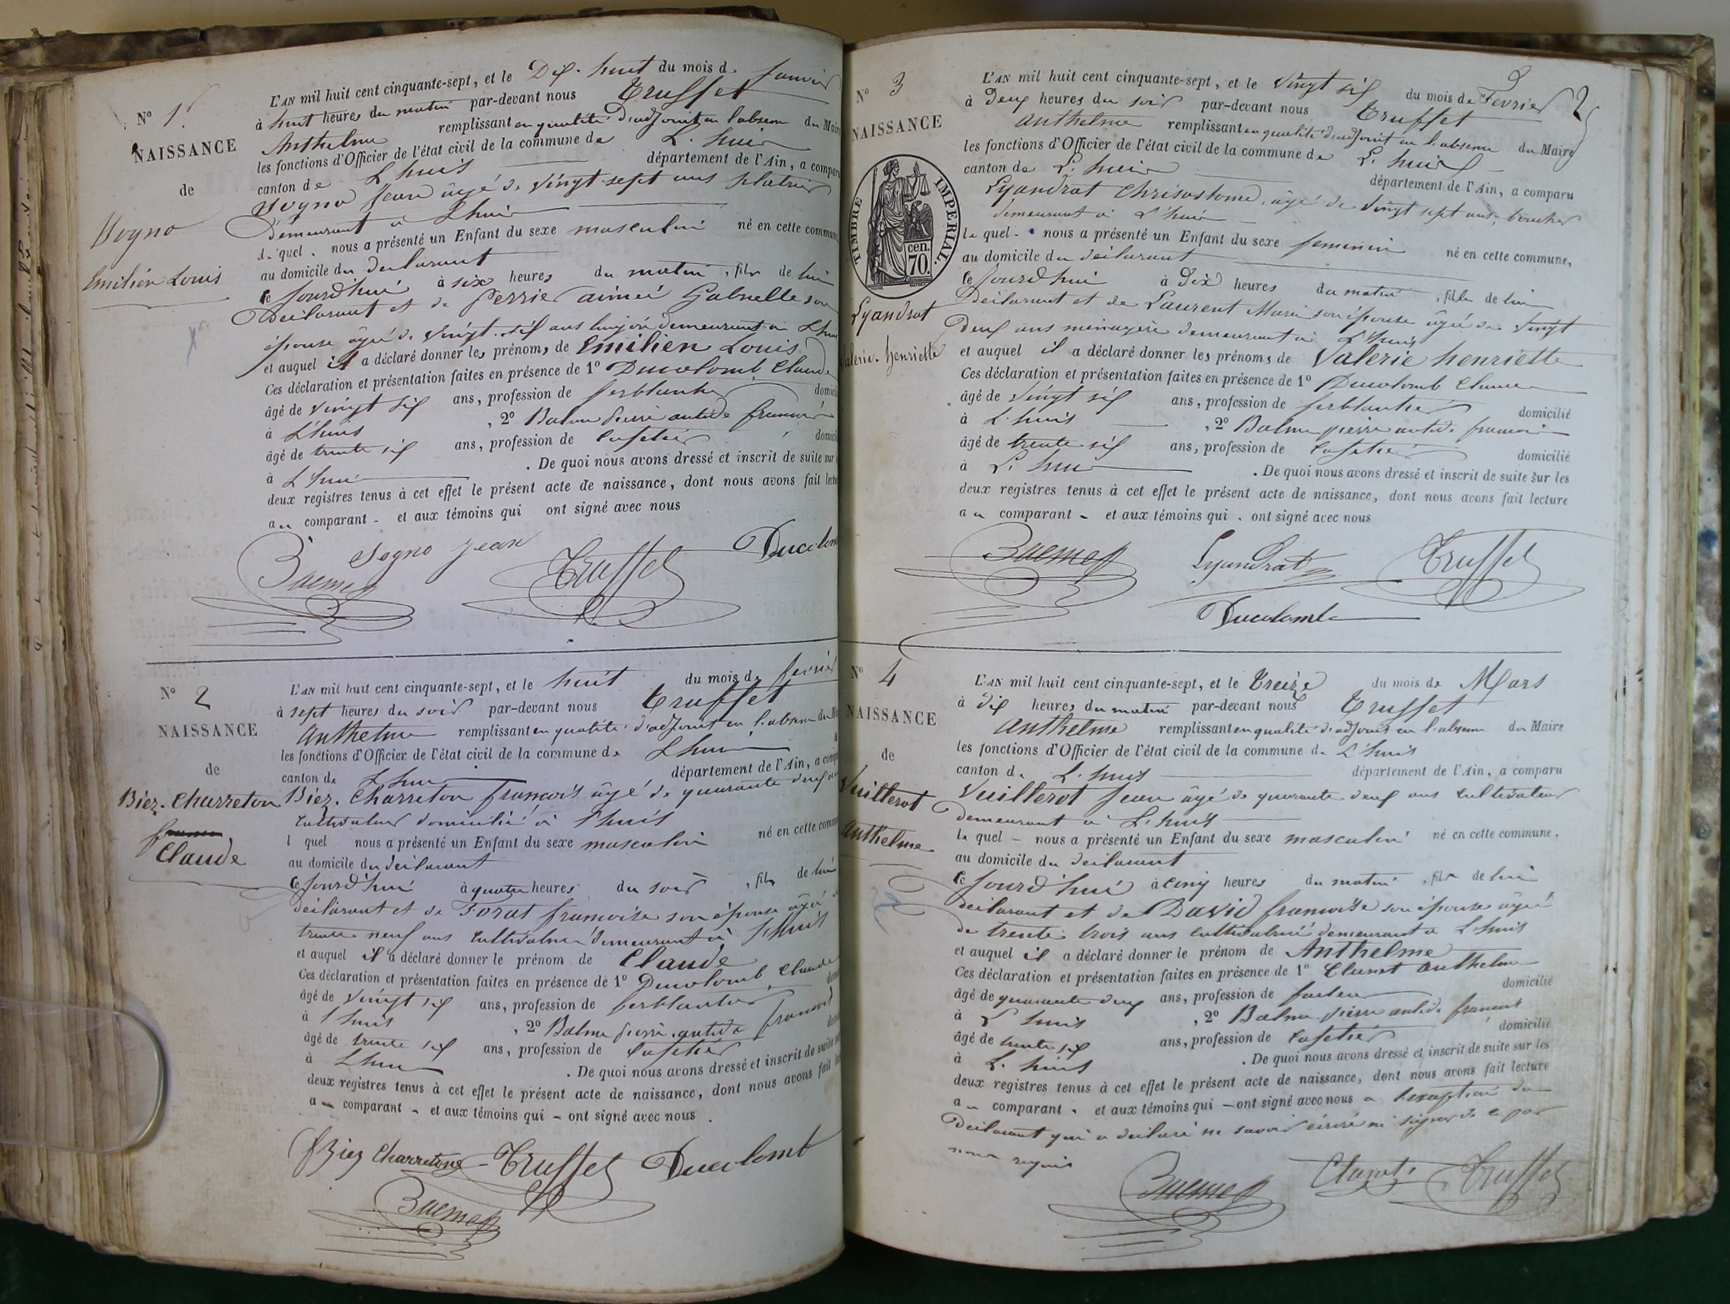 N° 1.
NAISSANCE
de
Sogno
Emilien Louis
L'AN mil huit cent cinquante-sept, et le Dix-huit du mois de Janvier
à huit heures du matin par-devant nous Truffet
Anthelme remplissant en qualité d'adjoint en l'absence du Maire
les fonctions d'Officier de l'état civil de la commune de L'huis
canton de L'huis département de l'Ain, a comparu
Sogno Jean âgé de vingt-sept ans platrier
demeurant à L'huis
lequel nous a présenté un Enfant du sexe masculin né en cette commune
au domicile du déclarant
ce Jourd'hui à six heures du matin, fils de lui
Déclarant et de Perrier aimée Gabrielle son
épouse âgée de vingt-six ans lingère demeurant à L'huis
et auquel il a déclaré donner les prénoms de Emilien Louis
Ces déclaration et présentation faites en présence de 1° Ducolomb Claude
âgé de vingt six ans, profession de ferblantier domicilié
à L'huis , 2° Balme pierre antide françois
âgé de trente six ans, profession de Cafetier domicilié
à L'huis . De quoi nous avons dressé et inscrit de suite sur les
deux registres tenus à cet effet le présent acte de naissance, dont nous avons fait lecture
au comparant - et aux témoins qui ont signé avec nous
Sogno Jean
Balme Truffet Ducolomb
N° 2
NAISSANCE
de
Biez-Charreton
Claude
L'AN mil huit cent cinquante-sept, et le huit du mois de février
à sept heures du soir par-devant nous Truffet
Anthelme remplissant en qualité d'adjoint en l'absence du Maire
les fonctions d'Officier de l'état civil de la commune de L'huis
canton de L'huis département de l'Ain, a comparu
Biez-Charreton françois âgé de quarante deux ans
cultivateur domicilié à L'huis
lequel nous a présenté un Enfant du sexe masculin né en cette commune
au domicile du déclarant
ce Jourd'hui à quatre heures du soir, fils de lui
déclarant et de Forat françoise son épouse âgée de
trente neuf ans cultivatrice demeurant à L'huis
et auquel il a déclaré donner le prénom de Claude
Ces déclaration et présentation faites en présence de 1° Ducolomb Claude
âgé de vingt six ans, profession de ferblantier
à L'huis , 2° Balme pierre antide françois
âgé de trente six ans, profession de Cafetier
à L'huis . De quoi nous avons dressé et inscrit de suite sur
deux registres tenus à cet effet le présent acte de naissance, dont nous avons fait
au comparant - et aux témoins qui - ont signé avec nous.
f Biez Charreton Truffet Ducolomb
Balme
2
N° 3
NAISSANCE
TIMBRE IMPERIAL.
cen.
70.
Lyandrat
Valérie-henriette
L'AN mil huit cent cinquante-sept, et le vingt six du mois de Fevrier
à Deux heures du soir par-devant nous Truffet
Anthelme remplissant en qualité d'adjoint en l'absence du Maire
les fonctions d'Officier de l'état civil de la commune de L'huis
canton de L'huis département de l'Ain, a comparu
Lyandrat Chrisostome, âgé de vingt sept ans, boucher
demeurant à L'huis
lequel - nous a présenté un Enfant du sexe feminin né en cette commune,
au domicile du déclarant
ce Jourd'hui à Dix heures du matin, fille de lui
Déclarant et de Laurent Marie son épouse âgée de vingt
Deux ans ménagère demeurant à L'huis
et auquel il a déclaré donner les prénoms de Valerie henriette
Ces déclaration et présentation faites en présence de 1° Ducolomb Claude
âgé de vingt six ans, profession de ferblantier domicilié
à L'huis , 2° Balme pierre antide françois
âgé de trente six ans, profession de Cafetier domicilié
à L'huis . De quoi nous avons dressé et inscrit de suite sur les
deux registres tenus à cet effet le présent acte de naissance, dont nous avons fait lecture
au comparant - et aux témoins qui . ont signé avec nous
Balme Lyandrat Truffet
Ducolomb
N° 4
NAISSANCE
de
Vuillerot
Anthelme
L'AN mil huit cent cinquante-sept, et le Treize du mois de Mars
à dix heures du matin par-devant nous Truffet
Anthelme remplissant en qualité d'adjoint en l'absence du Maire
les fonctions d'Officier de l'état civil de la commune de L'huis
canton de L'huis département de l'Ain, a comparu
Vuillerot Jean âgé de quarante deux ans cultivateur
demeurant à L'huis
lequel - nous a présenté un Enfant du sexe masculin né en cette commune.
au domicile du déclarant
ce Jourd'hui à cinq heures du matin, fils de lui
déclarant et de David françoise son épouse âgée
de trente trois ans cultivatrice demeurant à L'huis
et auquel il a déclaré donner le prénom de Anthelme
Ces déclaration et présentation faites en présence de 1° Anthelme
âgé de quarante deux ans, profession de facteur domicilié
à L'huis , 2° Balme pierre antide françois
âgé de trente six ans, profession de Cafetier domicilié
à L'huis . De quoi nous avons dressé et inscrit de suite sur les
deux registres tenus à cet effet le présent acte de naissance, dont nous avons fait lecture
au comparant - et aux témoins qui - ont signé avec nous a l'exception du
Déclarant qui a déclaré ne savoir écrire ni signer de ce par
nous requis
Balme Truffet